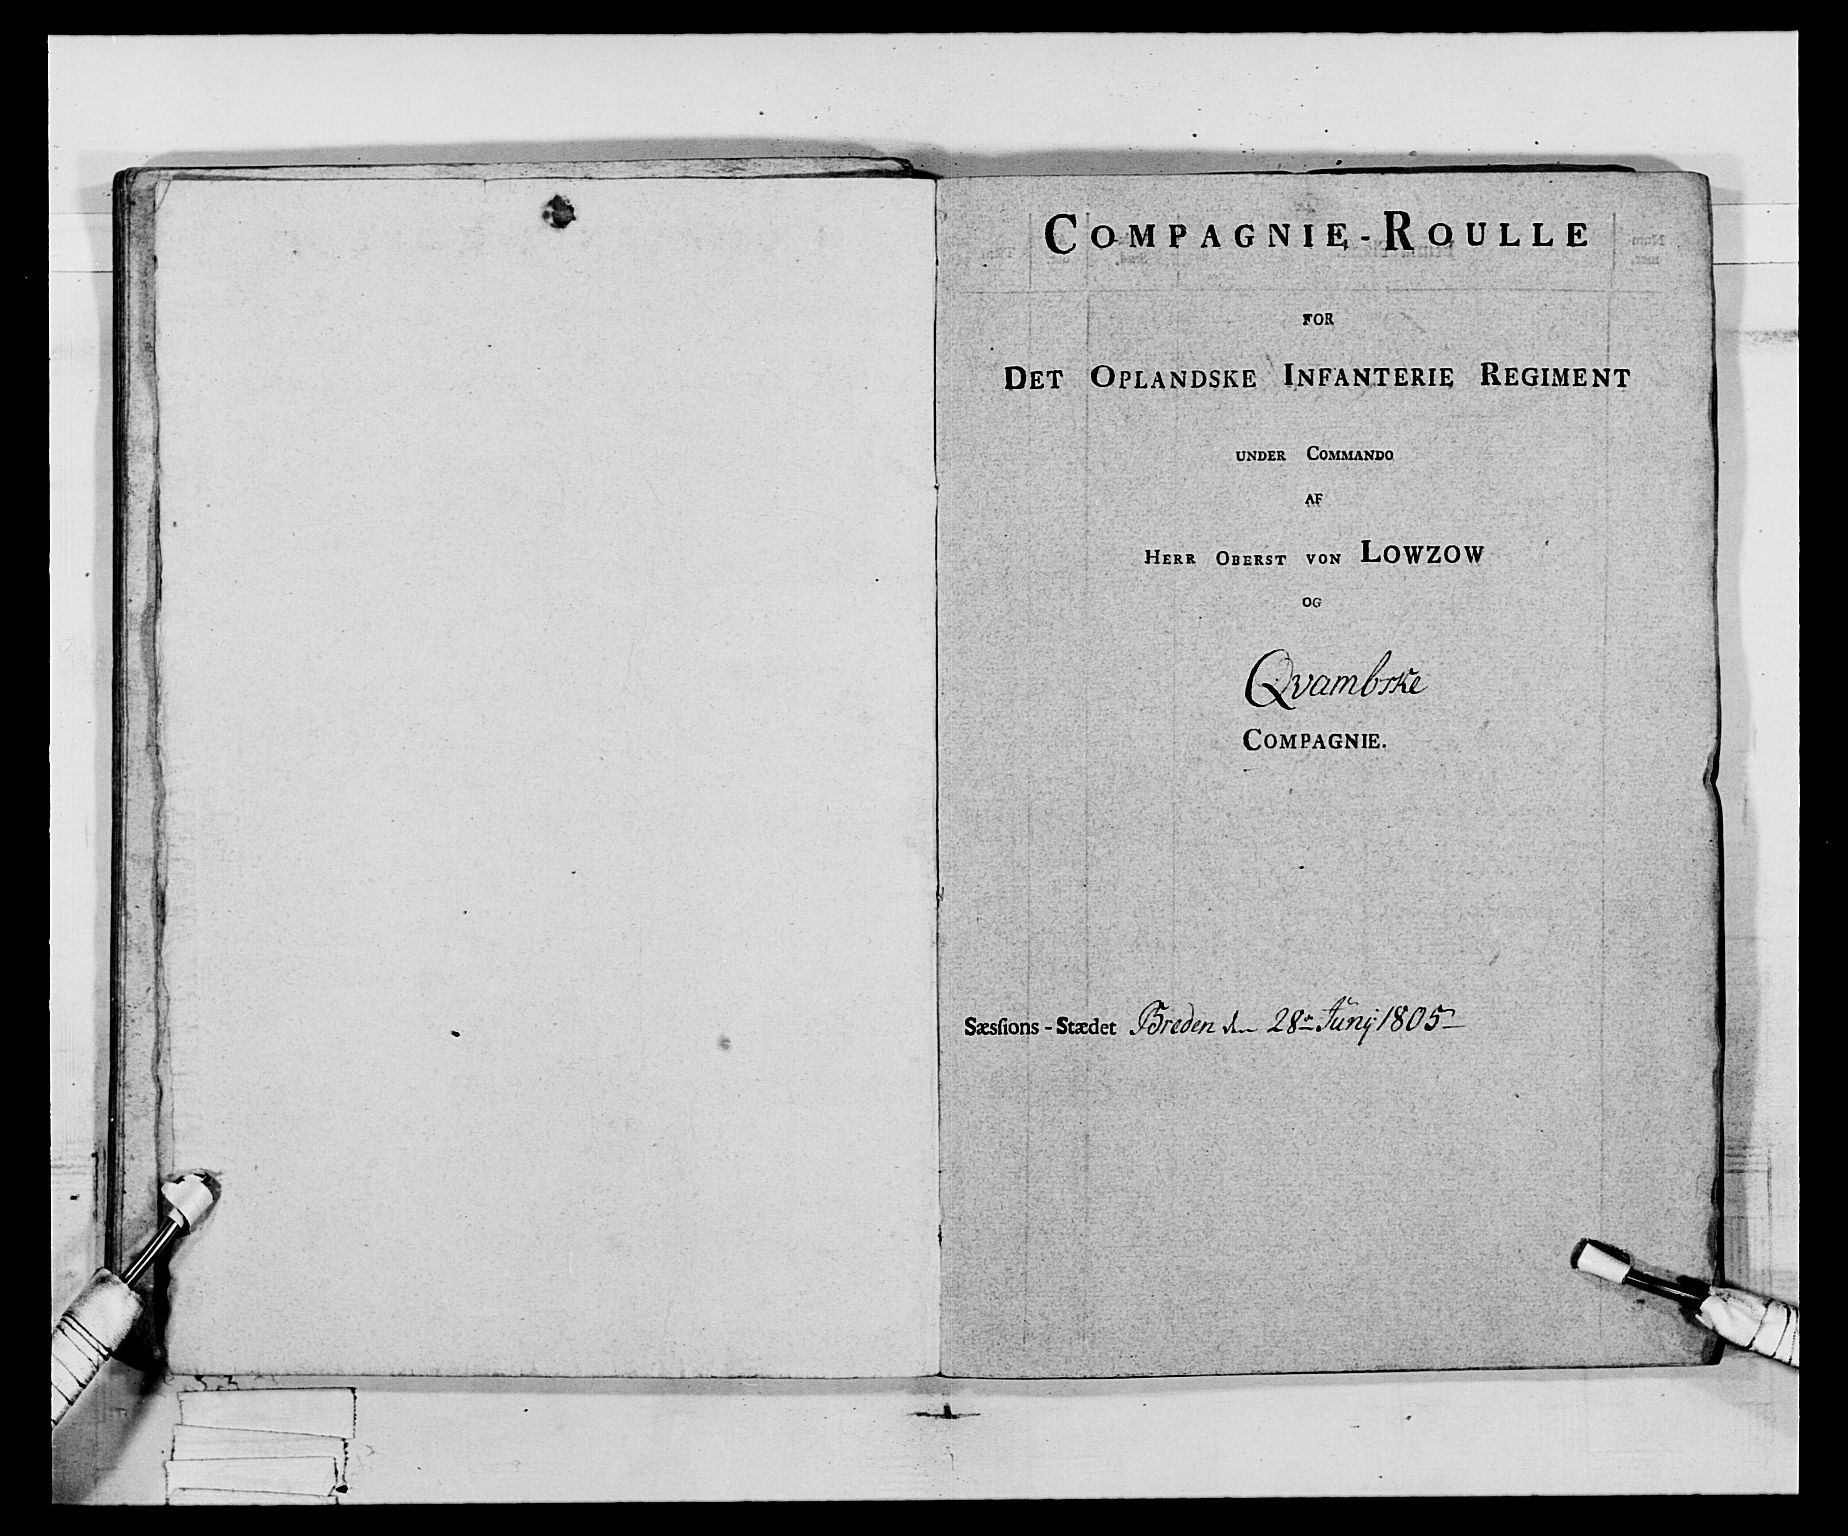 COMPAGNIE-ROULLE
FOR
DET OPLANDSKE INFANTERIE REGIMENT
UNDER COMMANDO
AF
HERR OBERST VON LOWZOW
OG
Qvambske
COMPAGNIE.
Sæsſions-Stædet Breden den 28de Junij 1805